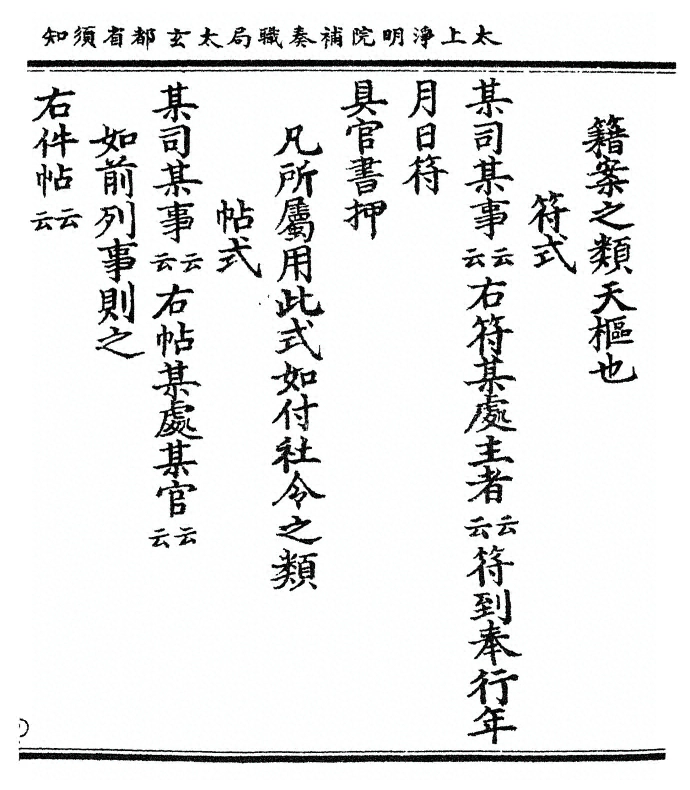 太上淨明院補奏職局太玄都省須知
籍案之類天樞也
符式
某司某事云云右符某處主者云云符到奉行年
月日符
具官書押
凡所屬用此式如付社令之類
帖式
某司某事云云右帖某處某官云云
如前列事則之
右件帖云云